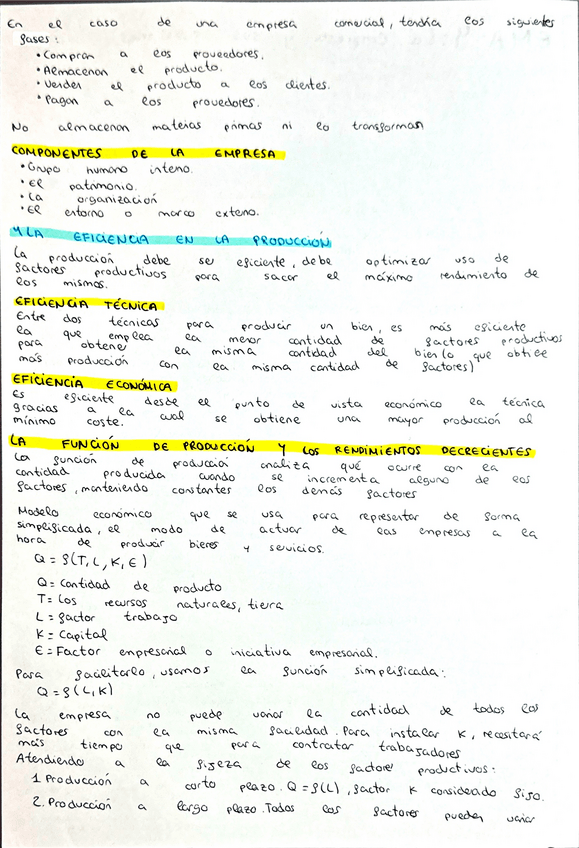 En el caso de una empresa comercial, tendría los siguientes
fases:
• Compran a los proveedores.
• Almacenan el producto.
• Venden el producto a los clientes.
• Pagan a los proveedores.
No almacenan materias primas ni lo transforman
COMPONENTES DE LA EMPRESA
• Grupo humano interno.
• El patrimonio.
• La organización
• El entorno o marco externo.
4 LA EFICIENCIA EN LA PRODUCCIÓN
La producción debe ser eficiente, debe optimizar uso de
factores productivos para sacar el máximo rendimiento de
los mismos.
EFICIENCIA TÉCNICA
Entre dos técnicas para producir un bien, es más eficiente
la que emplea la menor cantidad de factores productivos
para obtener la misma cantidad del bien (o que obtiene
más producción con la misma cantidad de factores)
EFICIENCIA ECONÓMICA
Es eficiente desde el punto de vista económico la técnica
gracias a la cual se obtiene una mayor producción al
mínimo coste.
LA FUNCIÓN DE PRODUCCIÓN Y LOS RENDIMIENTOS DECRECIENTES
La función de producción analiza qué ocurre con la
cantidad producida cuando se incrementa alguno de los
factores, manteniendo constantes los demás factores
Modelo económico que se usa para representar de forma
simplificada, el modo de actuar de las empresas a la
hora de producir bienes y servicios.
Q = f(T, L, K, E)
Q = Cantidad de producto
T = Los recursos naturales, tierra
L = factor trabajo
K = Capital
E = Factor empresarial o iniciativa empresarial.
Para facilitarlo, usamos la función simplificada:
Q = f(L, K)
La empresa no puede variar la cantidad de todos los
factores con la misma facilidad. Para instalar K, necesitará
más tiempo que para contratar trabajadores
Atendiendo a la fijeza de los factores productivos:
1. Producción a corto plazo. Q = f(L), factor K considerado fijo.
2. Producción a largo plazo. Todos los factores pueden variar